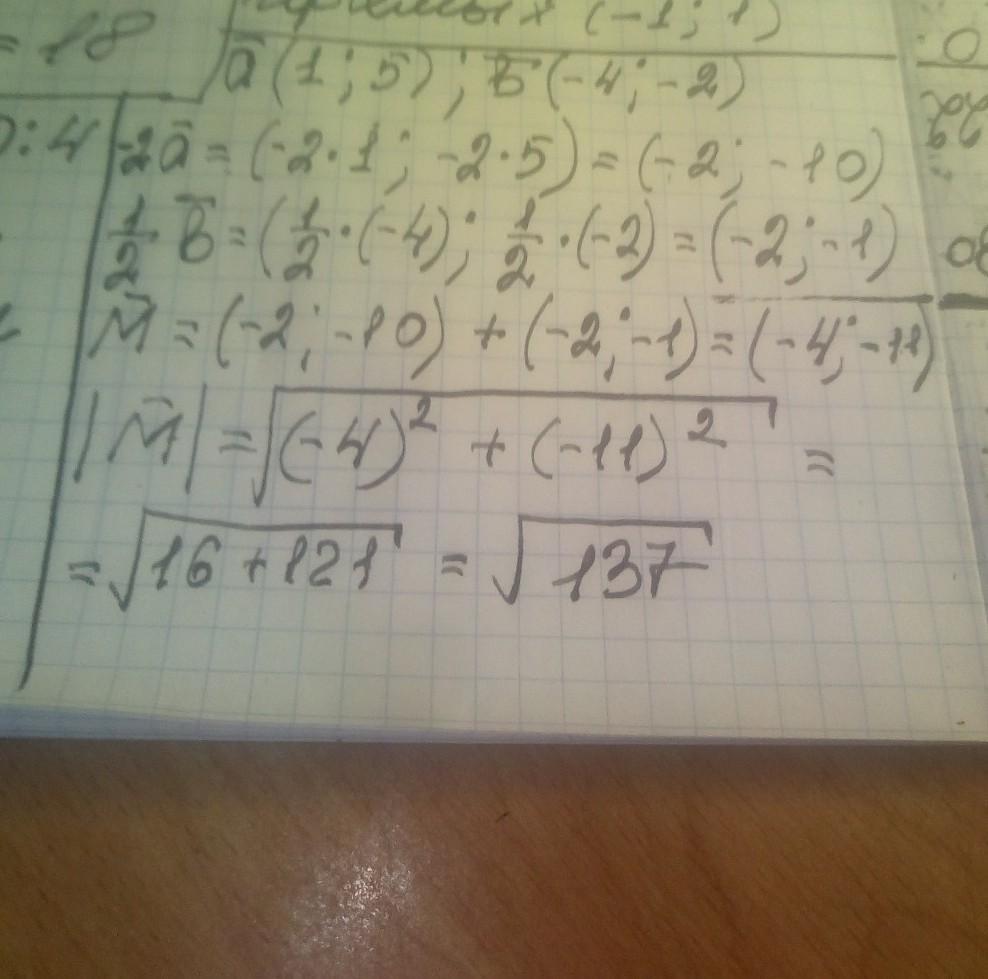 (-1; 1)
= 18
ā (1; 5); b̄ (-4; -2)
:4
-2ā = (-2·1; -2·5) = (-2; -10)
1/2 · b̄ = (1/2·(-4); 1/2·(-2) = (-2; -1)
M̄ = (-2; -10) + (-2; -1) = (-4; -11)
|M̄| = √((-4)² + (-11)²) =
= √(16 + 121) = √137